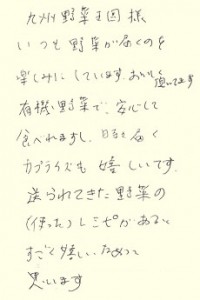 九州野菜王国様
いつも野菜が届くのを
楽しみにしています。おいしく頂いてます
有機野菜で、安心して
食べれますし、時々届く
サプライズも嬉しいです。
送られてきた野菜の
(使った)レシピがあると
すごく嬉しいなあって
思います